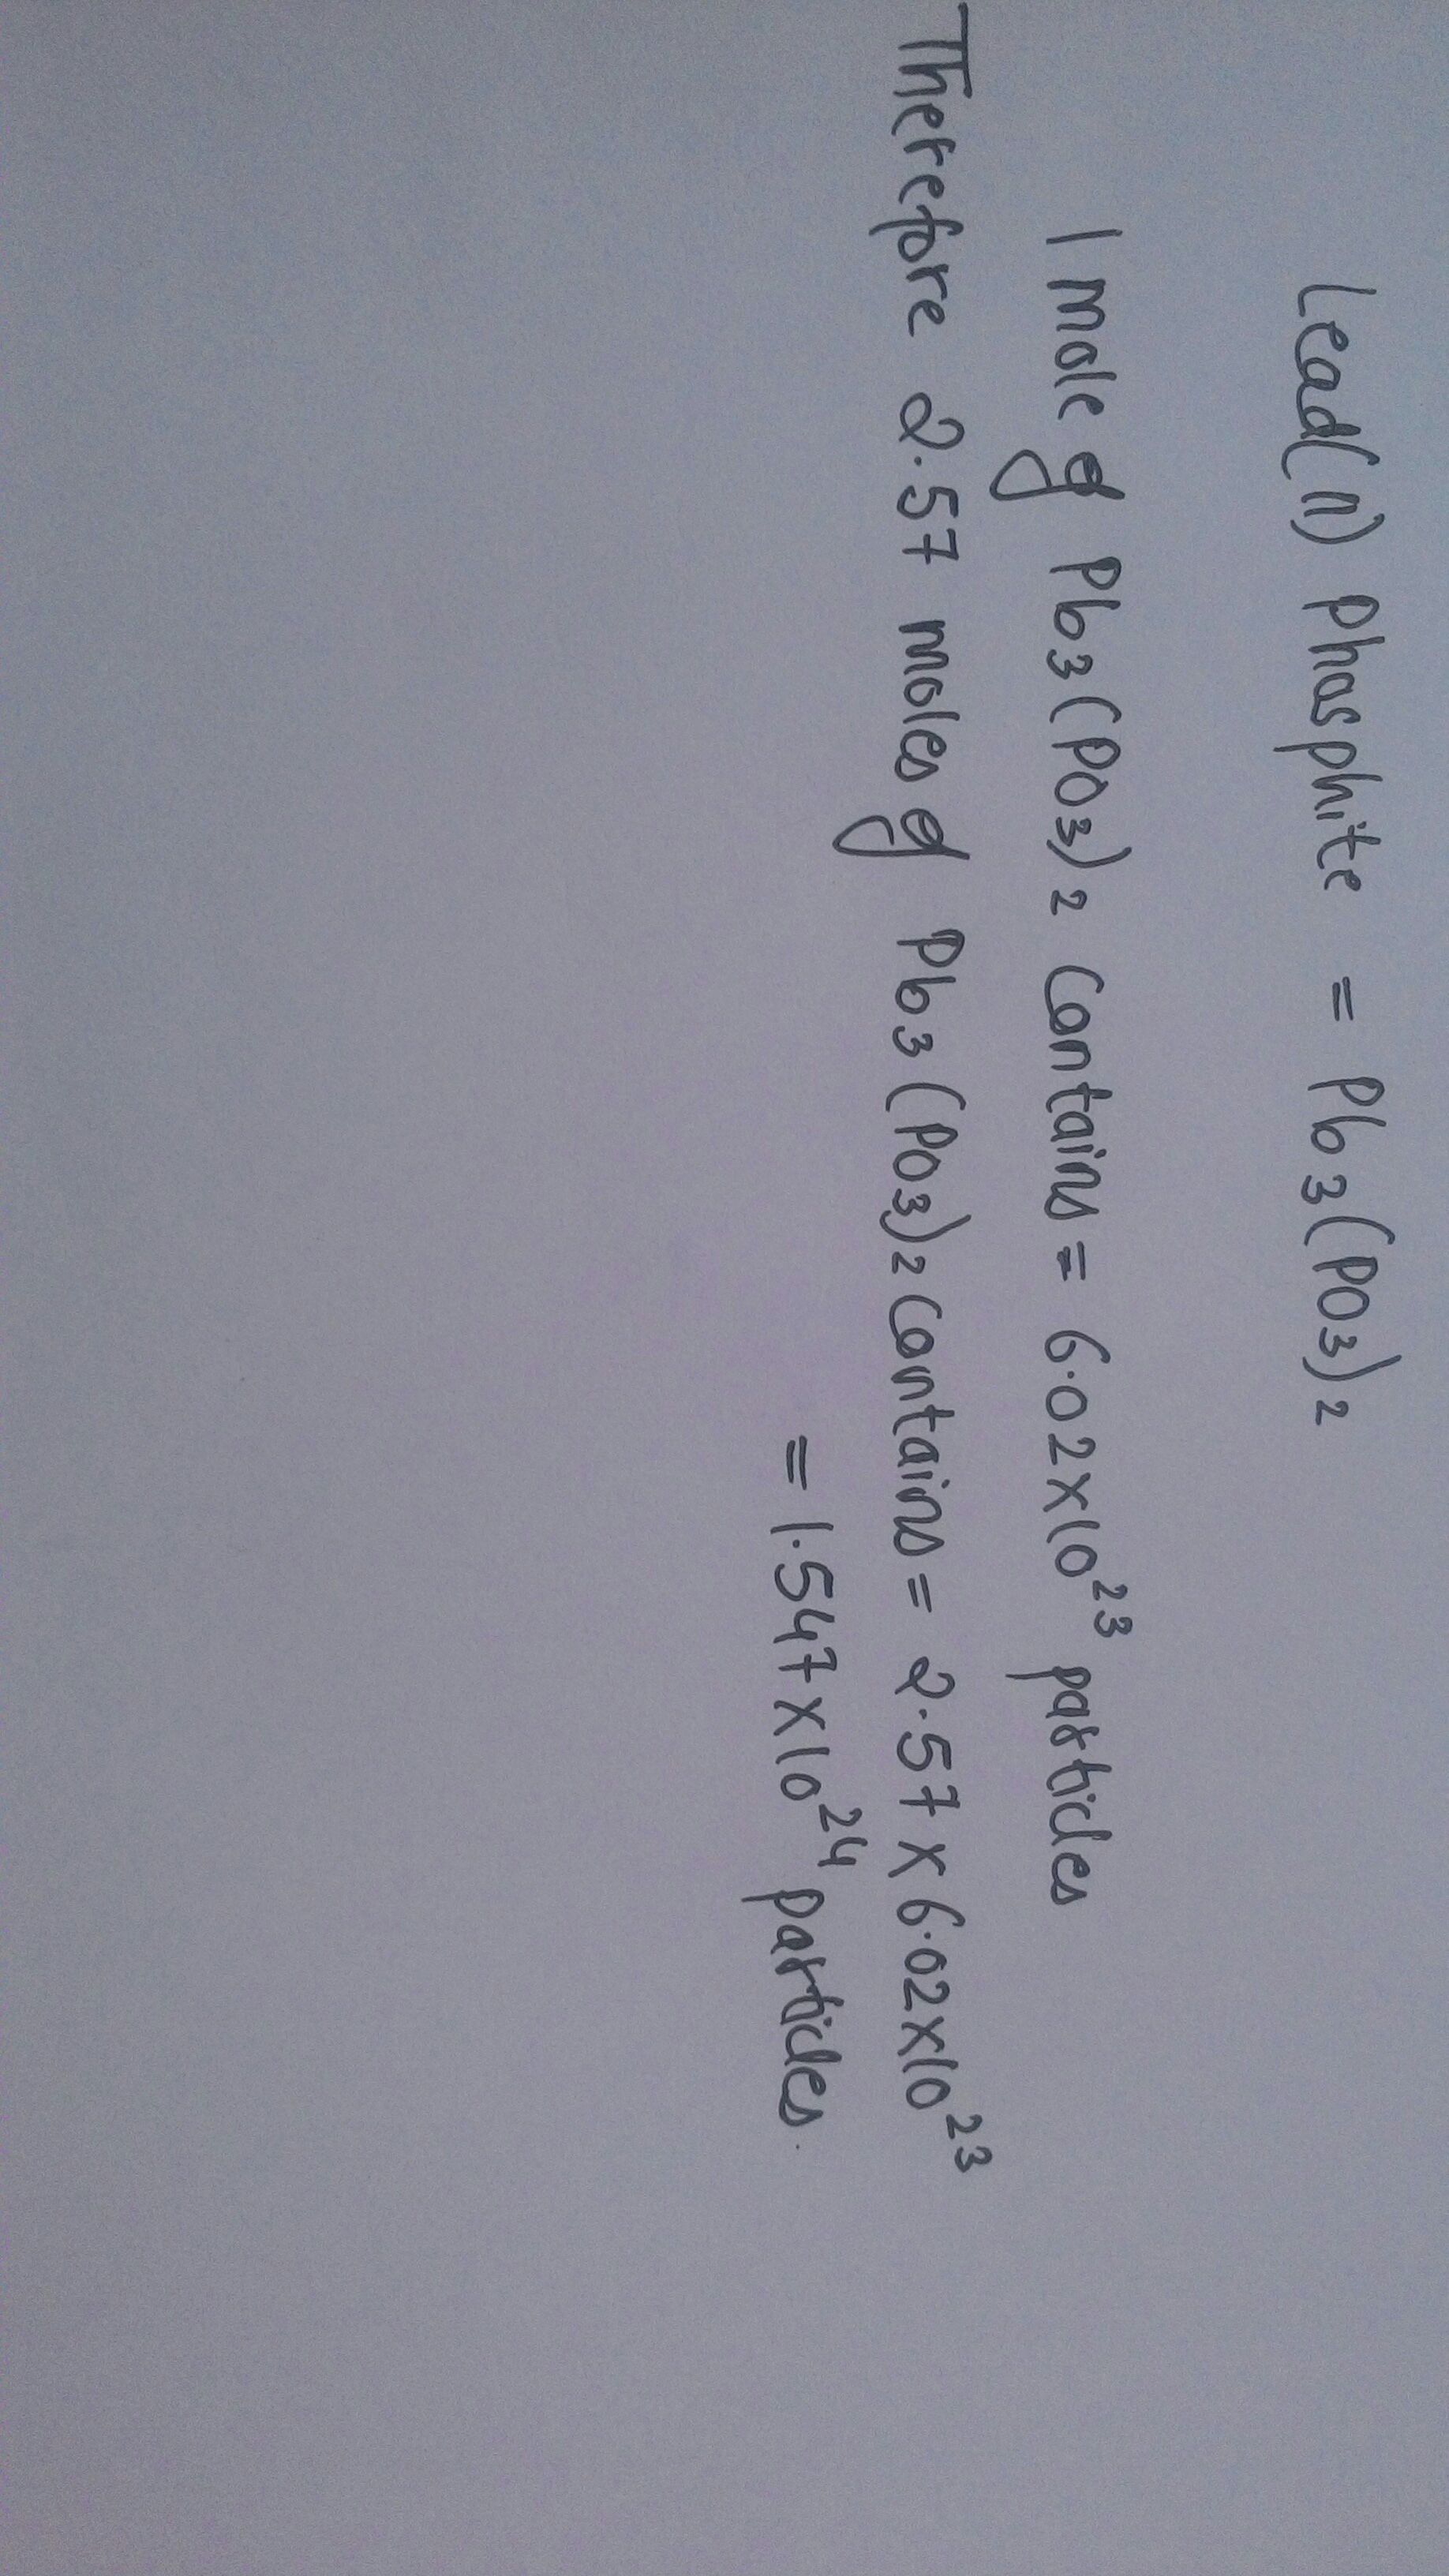 Lead(II) Phosphite = Pb3(PO3)2
1 mole of Pb3(PO3)2 contains = 6.02x10^23 particles
Therefore 2.57 moles of Pb3(PO3)2 contains = 2.57 x 6.02x10^23
= 1.547 x 10^24 particles.